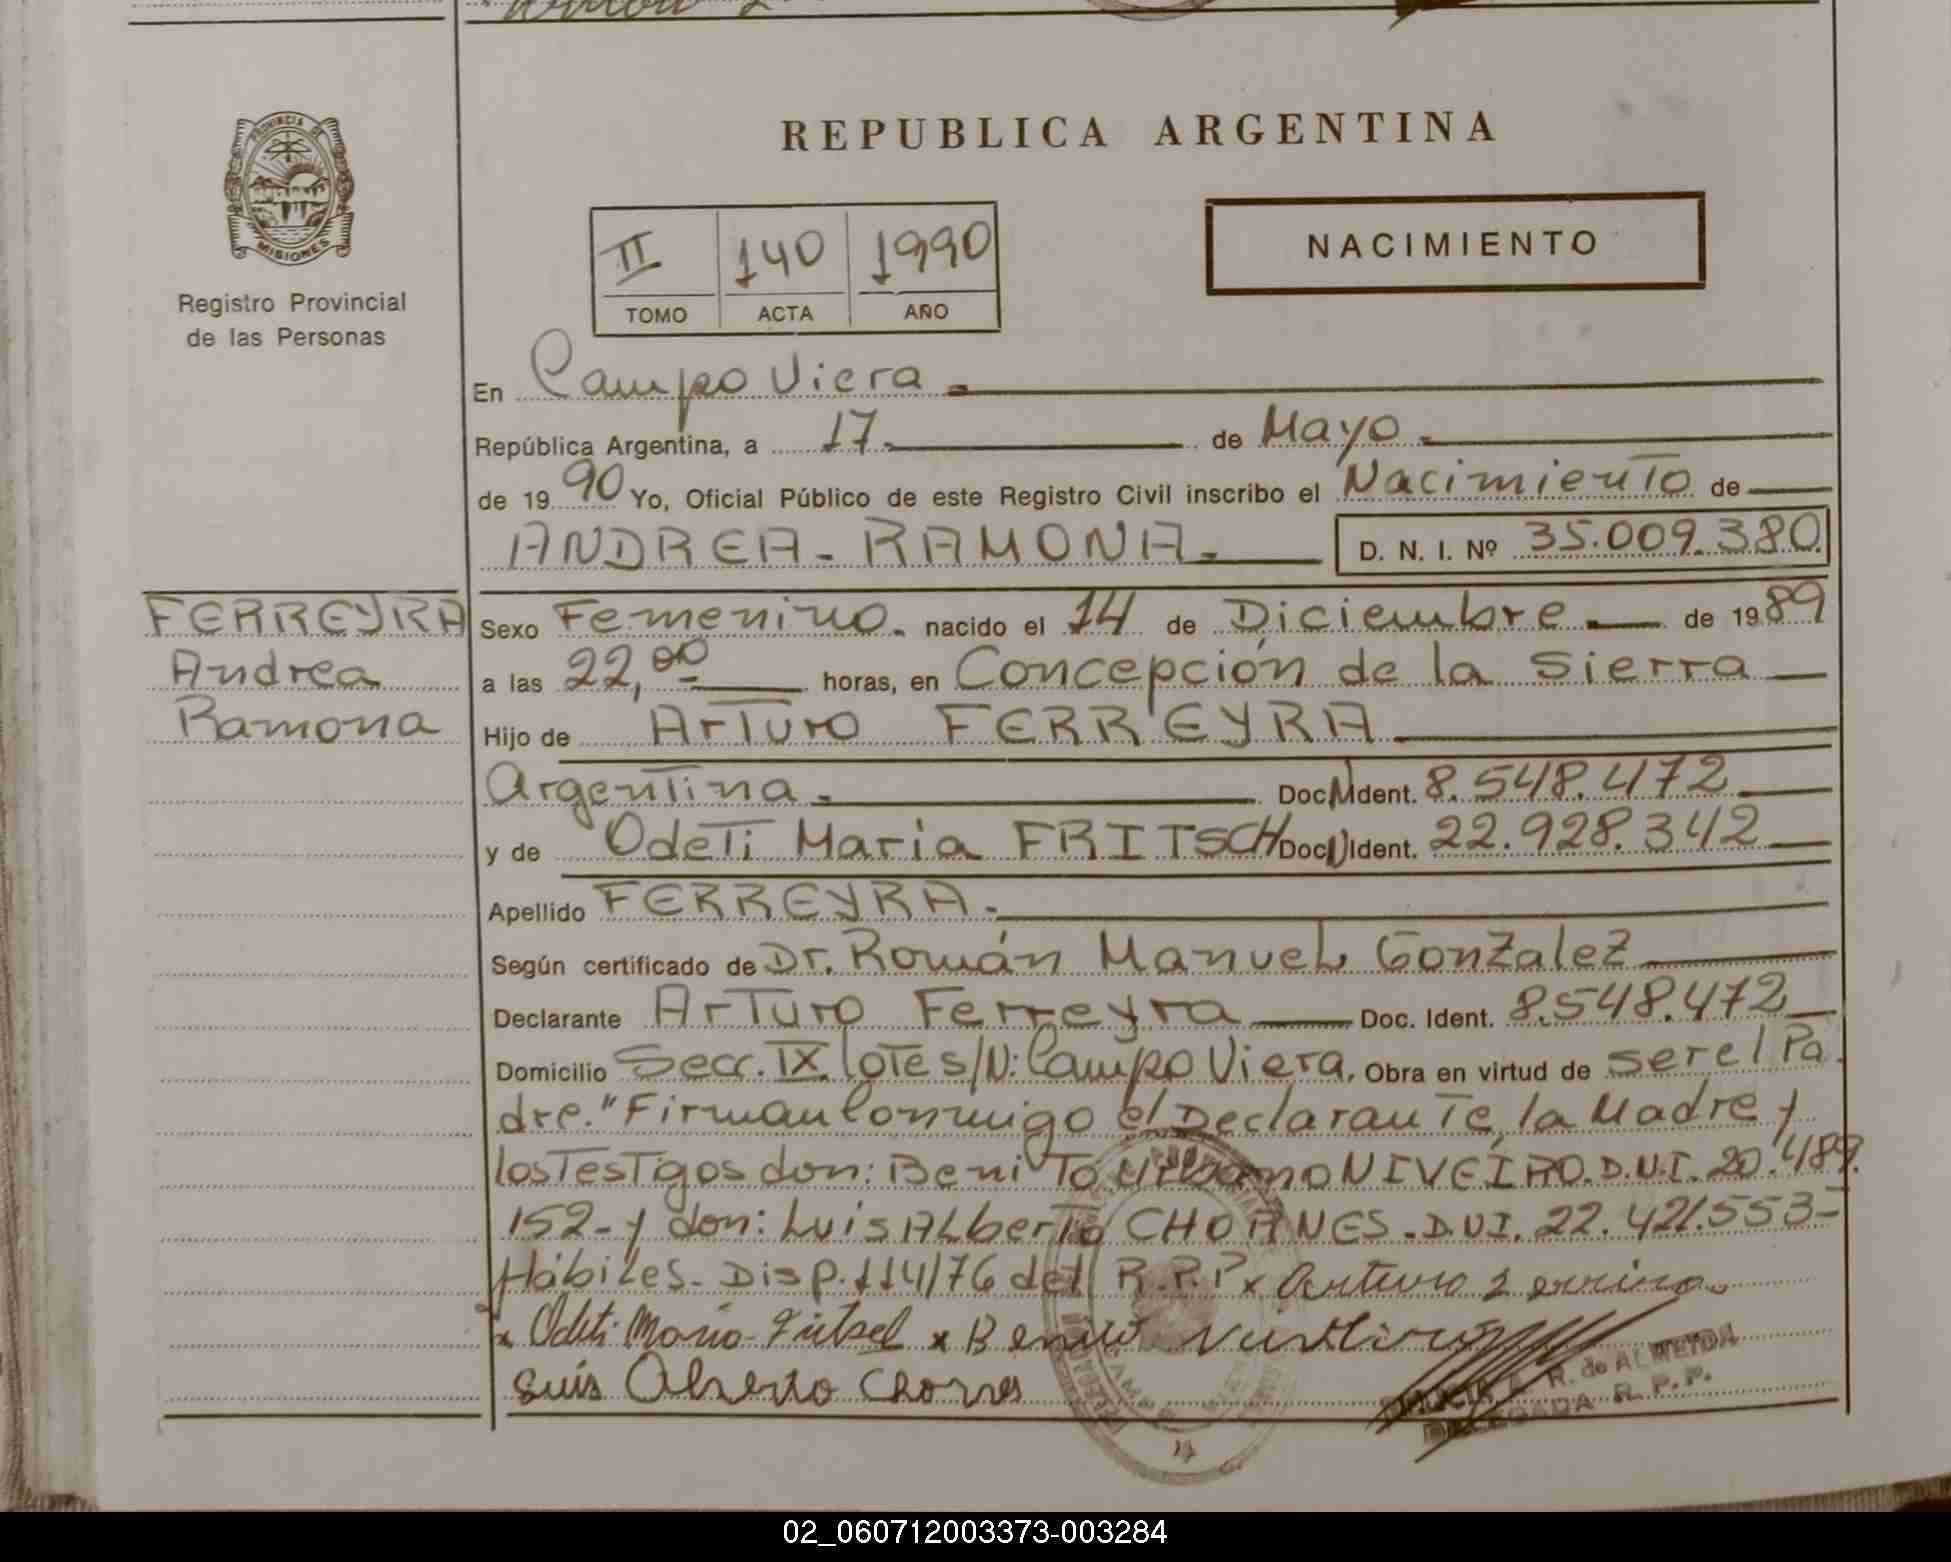 PROVINCIA DE
MISIONES
Registro Provincial
de las Personas
REPUBLICA ARGENTINA
NACIMIENTO
II 140 1990
TOMO ACTA AÑO
En Campo Viera.
República Argentina, a 17. de Mayo.
de 19 90 Yo, Oficial Público de este Registro Civil inscribo el Nacimiento de
ANDREA-RAMONA. D. N. I. Nº 35.009.380
FERREYRA
Andrea
Ramona
Sexo Femenino. nacido el 14 de Diciembre de 19 89
a las 22,00 horas, en Concepción de la Sierra
Hijo de Arturo FERREYRA
Argentina. Doc. Ident. 8.548.472
y de Odeti Maria FRITSCH Doc. Ident. 22.928.342
Apellido FERREYRA.
Según certificado de Dr. Román Manuel Gonzalez
Declarante Arturo Ferreyra Doc. Ident. 8.548.472
Domicilio Secc. IX lote s/N: Campo Viera. Obra en virtud de ser el Pa
dre." Firman Conmigo el Declarante, la Madre y
los Testigos don: Benito Urbano NIVEIRO. D.N.I. 20.489.
152- y don: Luis Alberto CHOANES. D.N.I. 22.421.553-
Hábiles. Disp. 114/76 del R.P.P x Arturo
x Odeti Maria x Benito
Luis Alberto
R. de ALMEIDA
DELEGADA R. P. P.
02_060712003373-003284